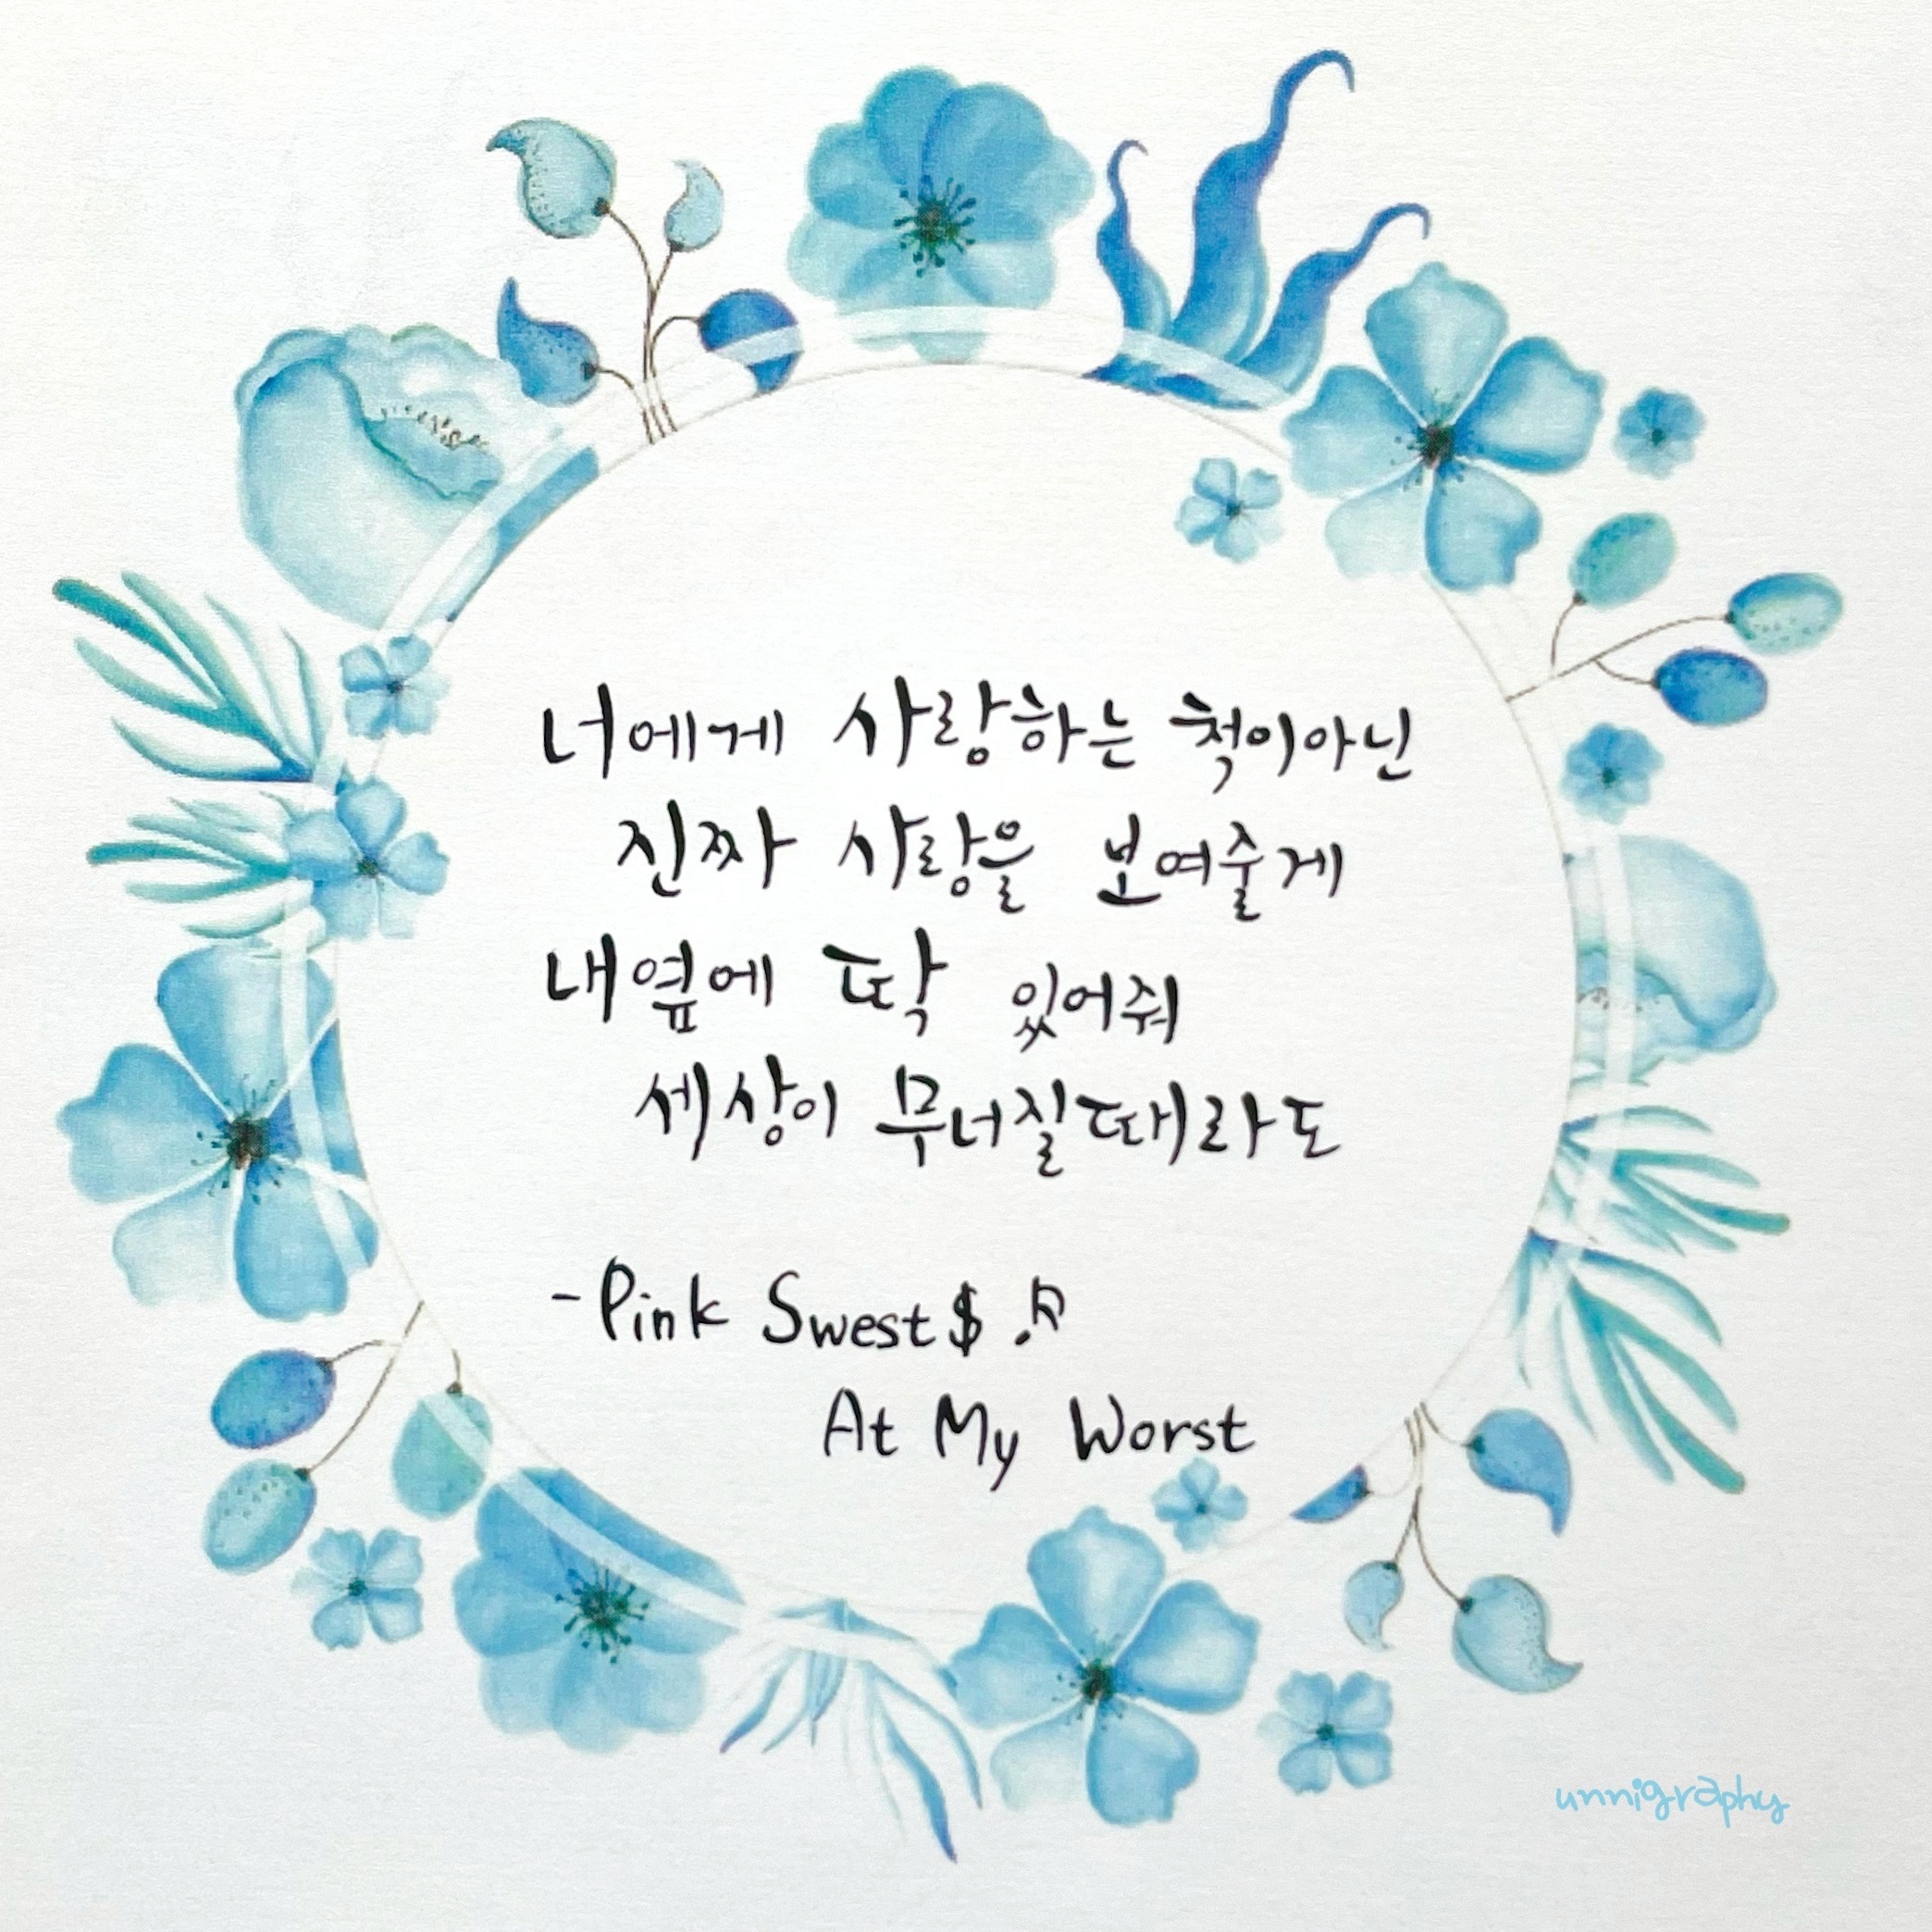 너에게 사랑하는 척이아닌
진짜 사랑을 보여줄게
내옆에 딱 있어줘
세상이 무너질때라도
-Pink Swest$ ♫
At My Worst
unnigraphy